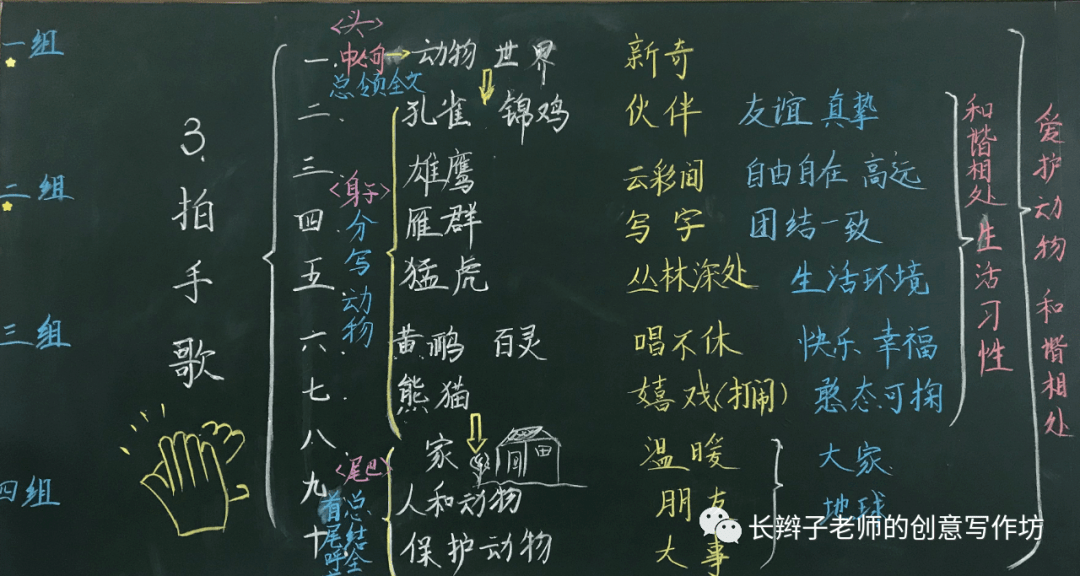 一组
二组
三组
四组
3.拍手歌
<头>
一 中心句→动物 世界 新奇
总领全文
二 孔雀 锦鸡 伙伴 友谊 真挚
三 雄鹰 云彩间 自由自在 高远
<身子>
分写动物
四 雁群 写字 团结一致
五 猛虎 丛林深处 生活环境
六 黄鹂 百灵 唱不休 快乐 幸福
七 熊猫 嬉戏(打闹) 憨态可掬
八 家 温暖 大家
<尾巴>
九 人和动物 朋友 地球
十 保护动物 大事
总结全
首尾呼
和谐相处 生活习性
爱护动物 和谐相处
长辫子老师的创意写作坊